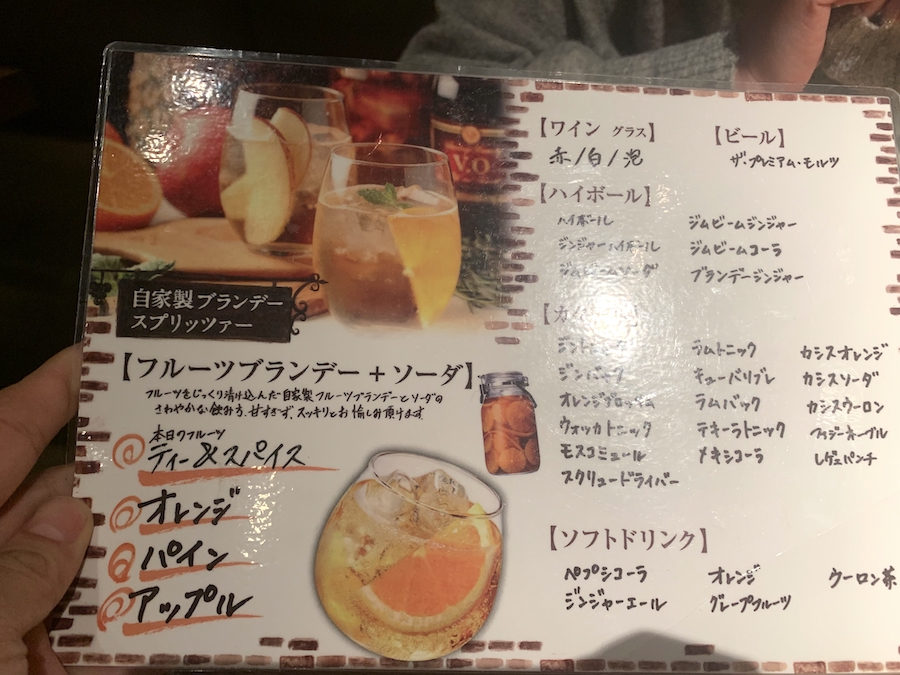 V.O
自家製ブランデー
スプリッツァー
【フルーツブランデー+ソーダ】
フルーツをじっくり漬け込んだ自家製フルーツブランデーとソーダの
さわやかな飲み方、甘すぎず、スッキリとお愉しみ頂けます
本日のフルーツ
ティー&スパイス
オレンジ
パイン
アップル
【ワイン グラス】
赤/白/泡
【ビール】
ザ・プレミアム・モルツ
【ハイボール】
ハイボール
ジンジャーハイボール
ジムビームソーダ
ジムビームジンジャー
ジムビームコーラ
ブランデージンジャー
ジントニック
ジンバック
オレンジブロッサム
ウォッカトニック
モスコミュール
スクリュードライバー
ラムトニック
キューバリブレ
ラムバック
テキーラトニック
メキシコーラ
カシスオレンジ
カシスソーダ
カシスウーロン
ファジーネーブル
レゲェパンチ
【ソフトドリンク】
ペプシコーラ
ジンジャーエール
オレンジ
グレープフルーツ
ウーロン茶